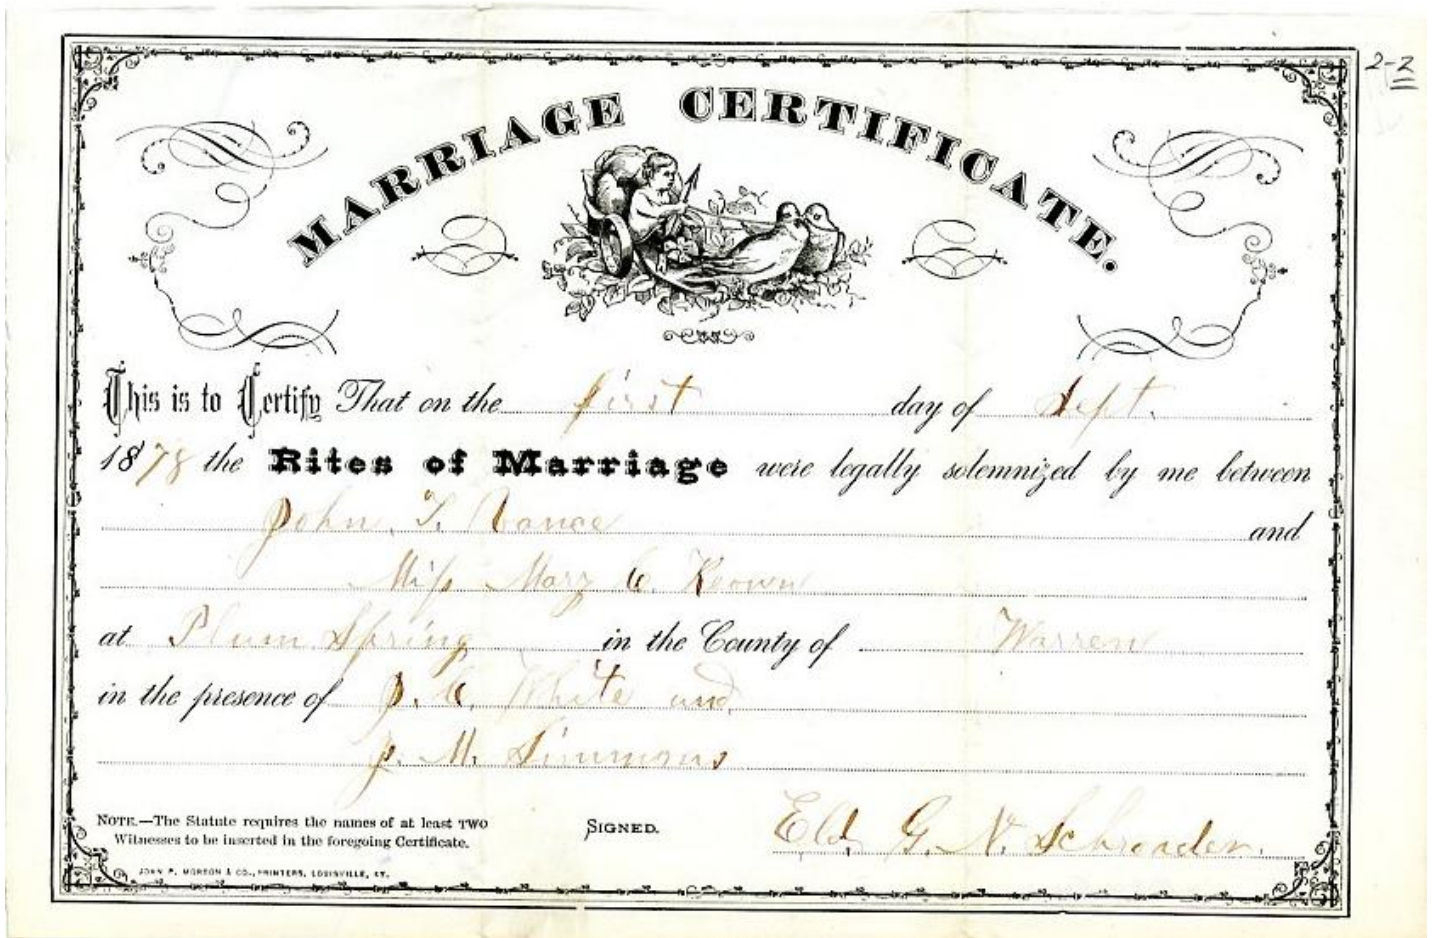 2-2
MARRIAGE CERTIFICATE.
This is to Certify That on the first day of Sept.
1878 the Rites of Marriage were legally solemnized by me between
John T. Vance and
Miss Mary C. Keown
at Plum Spring in the County of Warren
in the presence of J. C. White and
J. M. Simmons
NOTE.—The Statute requires the names of at least TWO
Witnesses to be inserted in the foregoing Certificate.
SIGNED.
Eld. G. N. Schroader.
JOHN P. MORTON & CO., PRINTERS, LOUISVILLE, KY.